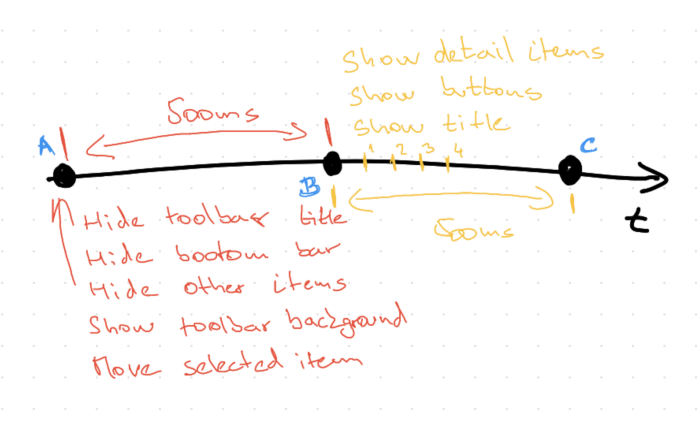 Show detail items
Show buttons
Show title
500ms
A
1 2 3 4
C
B
500ms
t
Hide toolbar title
Hide bootom bar
Hide other items
Show toolbar background
Move selected item